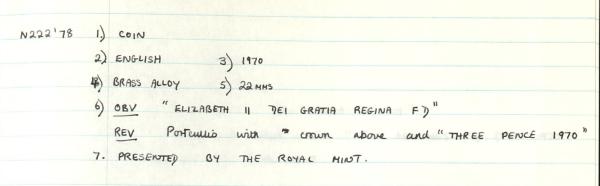 N222'78 1.) COIN
2) ENGLISH 3) 1970
4) BRASS ALLOY 5) 22 MMS
6) OBV "ELIZABETH II DEI GRATIA REGINA F D"
REV Portcullis with crown above and "THREE PENCE 1970"
7. PRESENTED BY THE ROYAL MINT.